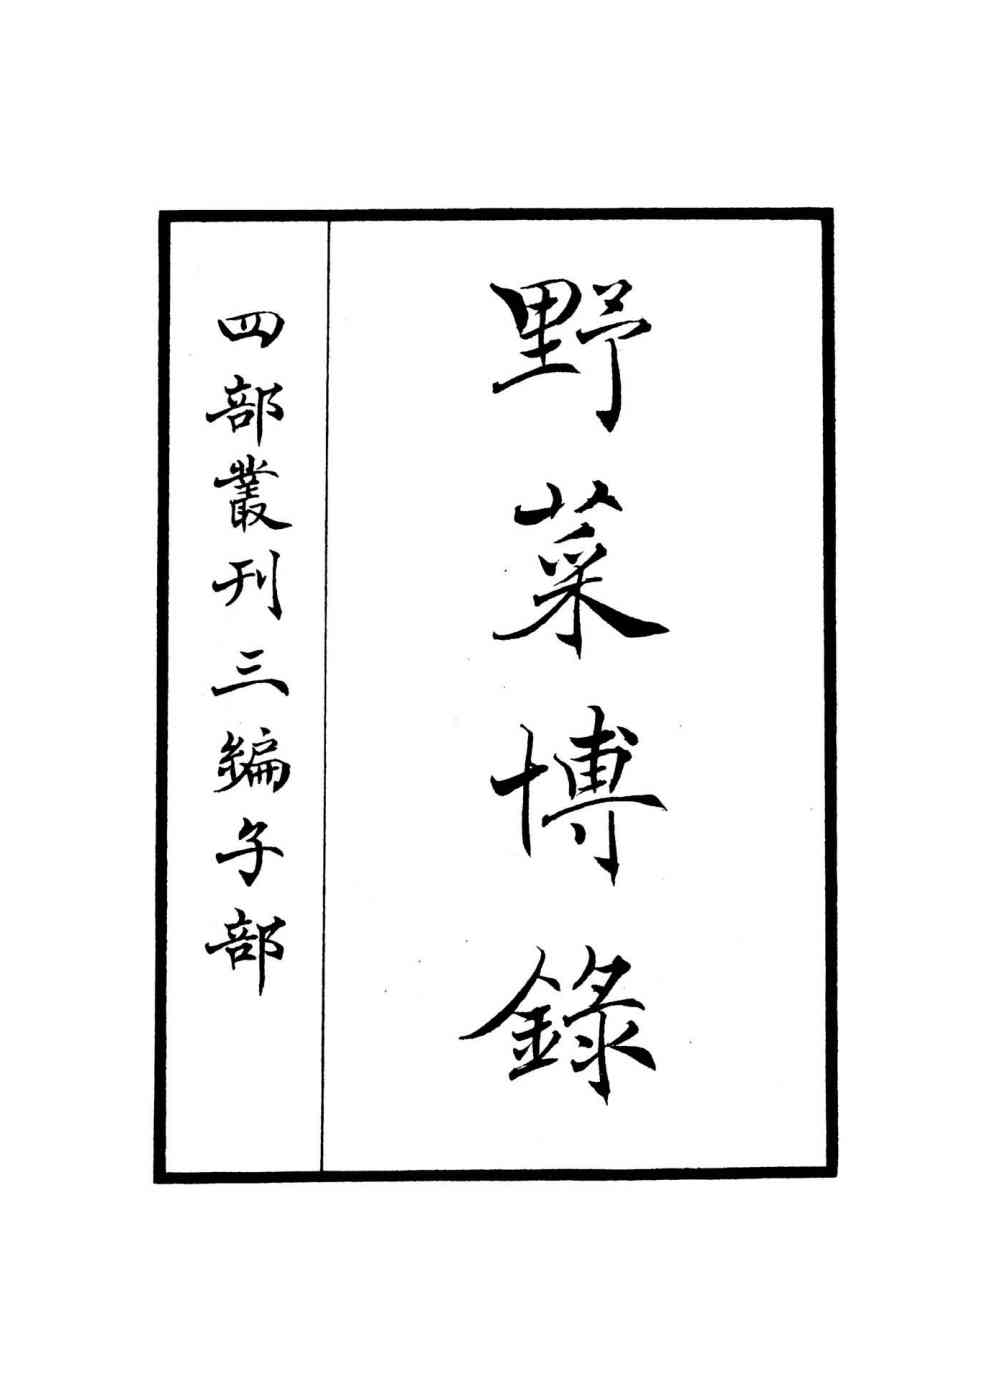 野菜博錄
四部叢刊三編子部